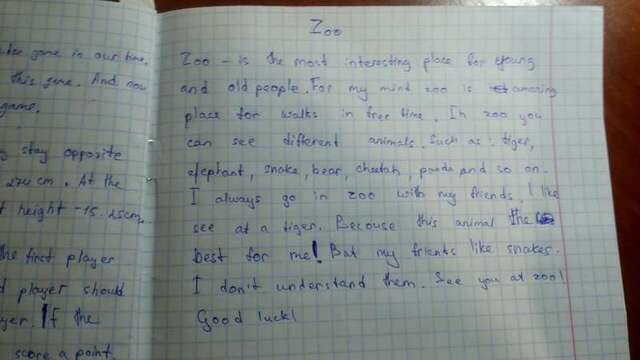 game in our time.
this game. And now
game.
stay opposite
274 cm. At the
t height - 15.25cm
the first player
d player should
yer. If the
score a point.
Zoo
Zoo - is the most interesting place for young
and old people. For my mind zoo is amazing
place for walks in free time. In zoo you
can see different animals. Such as: tiger,
elephant, snake, bear, cheetah, panda and so on.
I always go in zoo with my friends. I like
see at a tiger. Because this animal the
best for me! Bat my frients like snakes.
I don't understand them. See you at zoo!
Good luck!